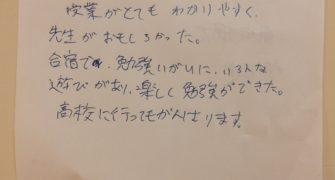 授業がとても わかりやすく、
先生がおもしろかった。
合宿で、勉強いがいに、いろんな
遊びがあり、楽しく勉強ができた。
高校に行ってもがんばります。